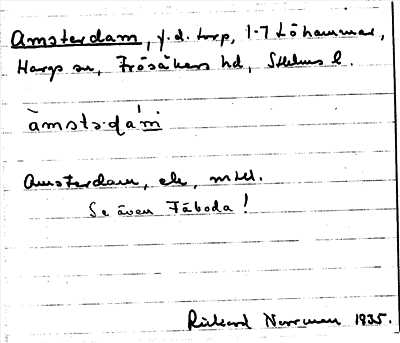 Amsterdam, y.d. torp, 1-7 Löhammar,
Hargs sn, Frösåkers hd, Sthlms l.
àmstəɖám
Amsterdam, ek, mtl.
Se även Fäboda!
Rickard Norrman 1935.